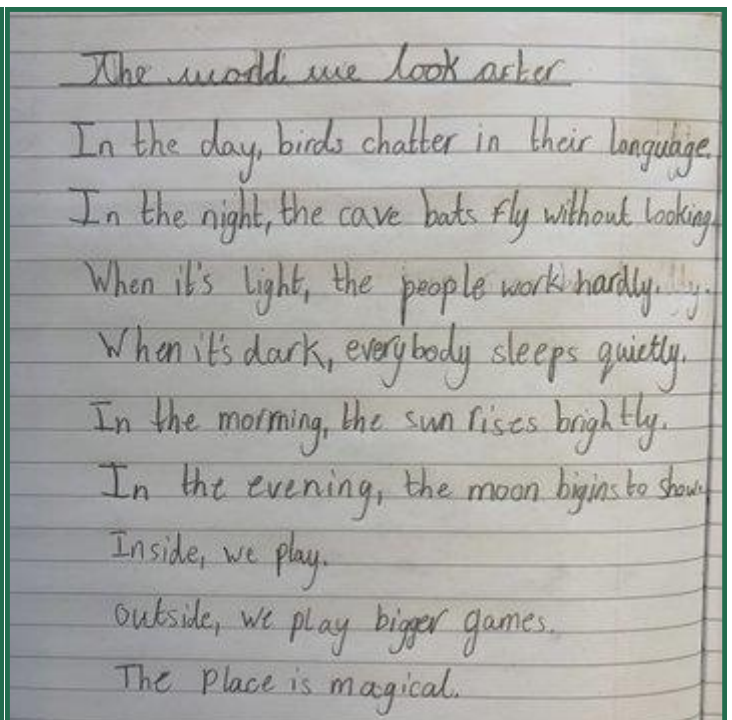 The world we look after
In the day, birds chatter in their language.
In the night, the cave bats fly without looking.
When it's light, the people work hardly.
When it's dark, everybody sleeps quietly.
In the morming, the sun rises brightly.
In the evening, the moon bigins to show.
Inside, we play.
Outside, we play bigger games.
The place is magical.